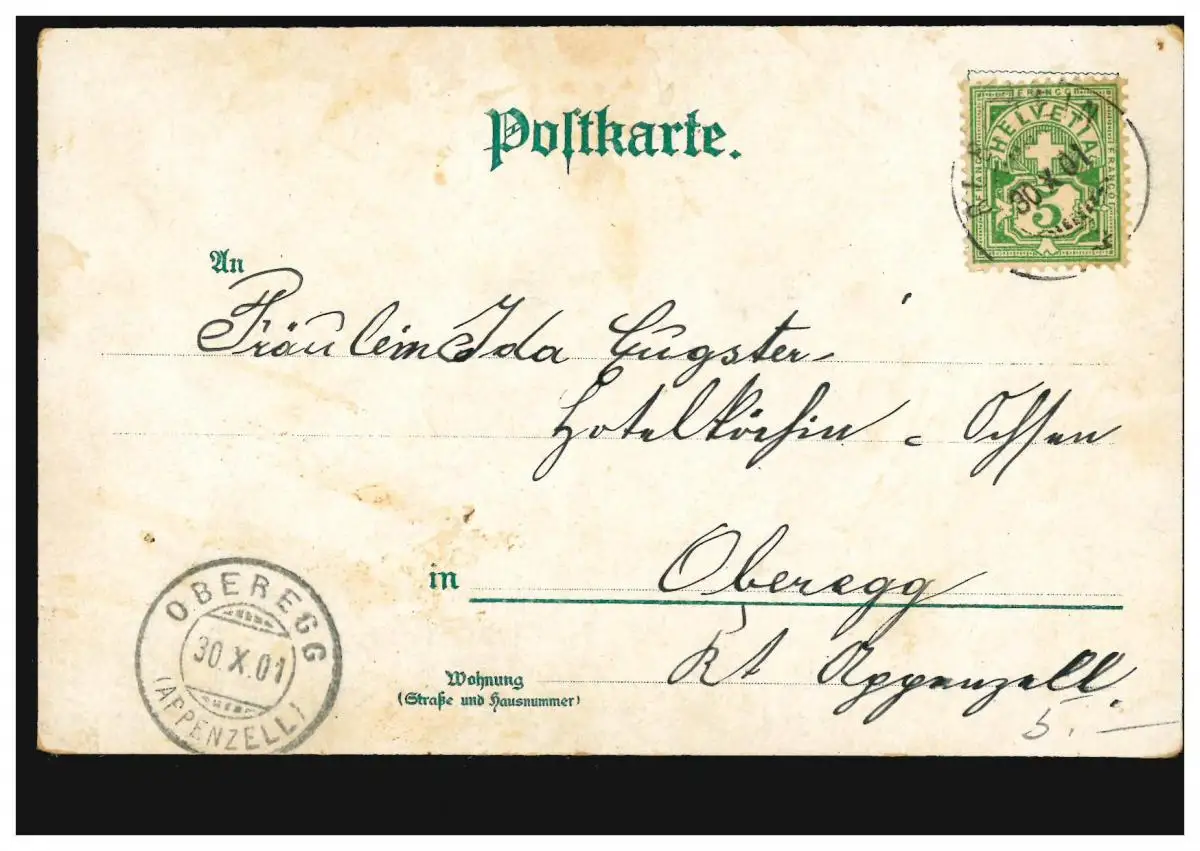 Postkarte.
FRANCO
HELVETIA
FRANCO FRANCO
30 X 01
5
An
Fräulein Ida Eugster
Hotelköchin - Ochsen
in Oberegg
Kt Appenzell.
Wohnung
(Straße und Hausnummer)
5. —
OBEREGG
30.X.01
(APPENZELL)